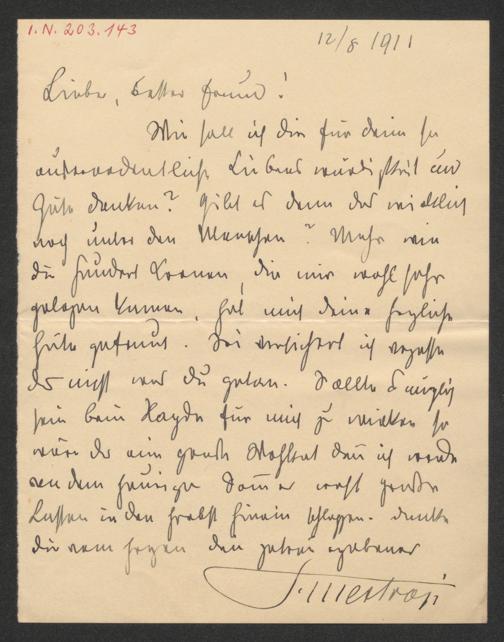 I.N. 203.143
12/8 1911
Lieber, bester Freund!
Wie soll ich dir für deine so
außerordentliche Liebenswürdigkeit und
Güte danken? Gibt es denn das wirklich
noch unter den Menschen? Mehr wie
die hundert Kronen, die mir wohl sehr
gelegen kamen, hat mich deine herzliche
Güte gefreut. Sei versichert ich vergesse
dir nicht was du getan. Sollte es möglich
sein beim Haydn für mich zu wirken so
wäre das eine große Wohltat denn ich werde
von dem heurigen Sommer wohl große
Lasten in den Herbst hinein schleppen. Danke
dir vom Herzen dein getreu ergebener